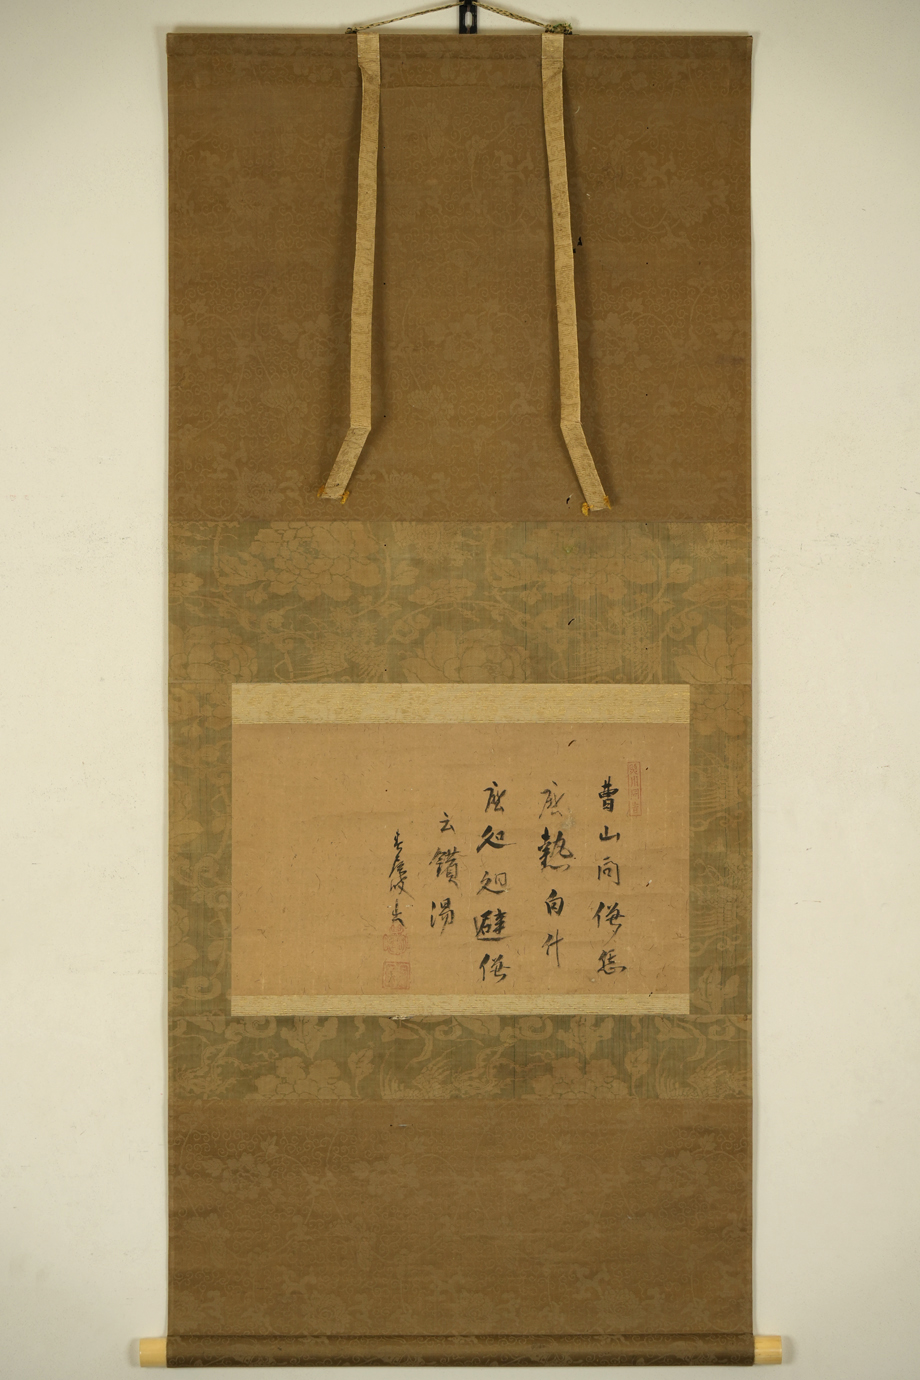 曹山問僧恁
麼熱向什
麼処廻避僧
云鑊湯